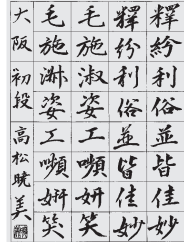 釋紛利俗並皆佳妙
釋紛利俗並皆佳妙
毛施淑姿工嚬妍笑
毛施淑姿工嚬妍笑
大阪 初段 高松暁美